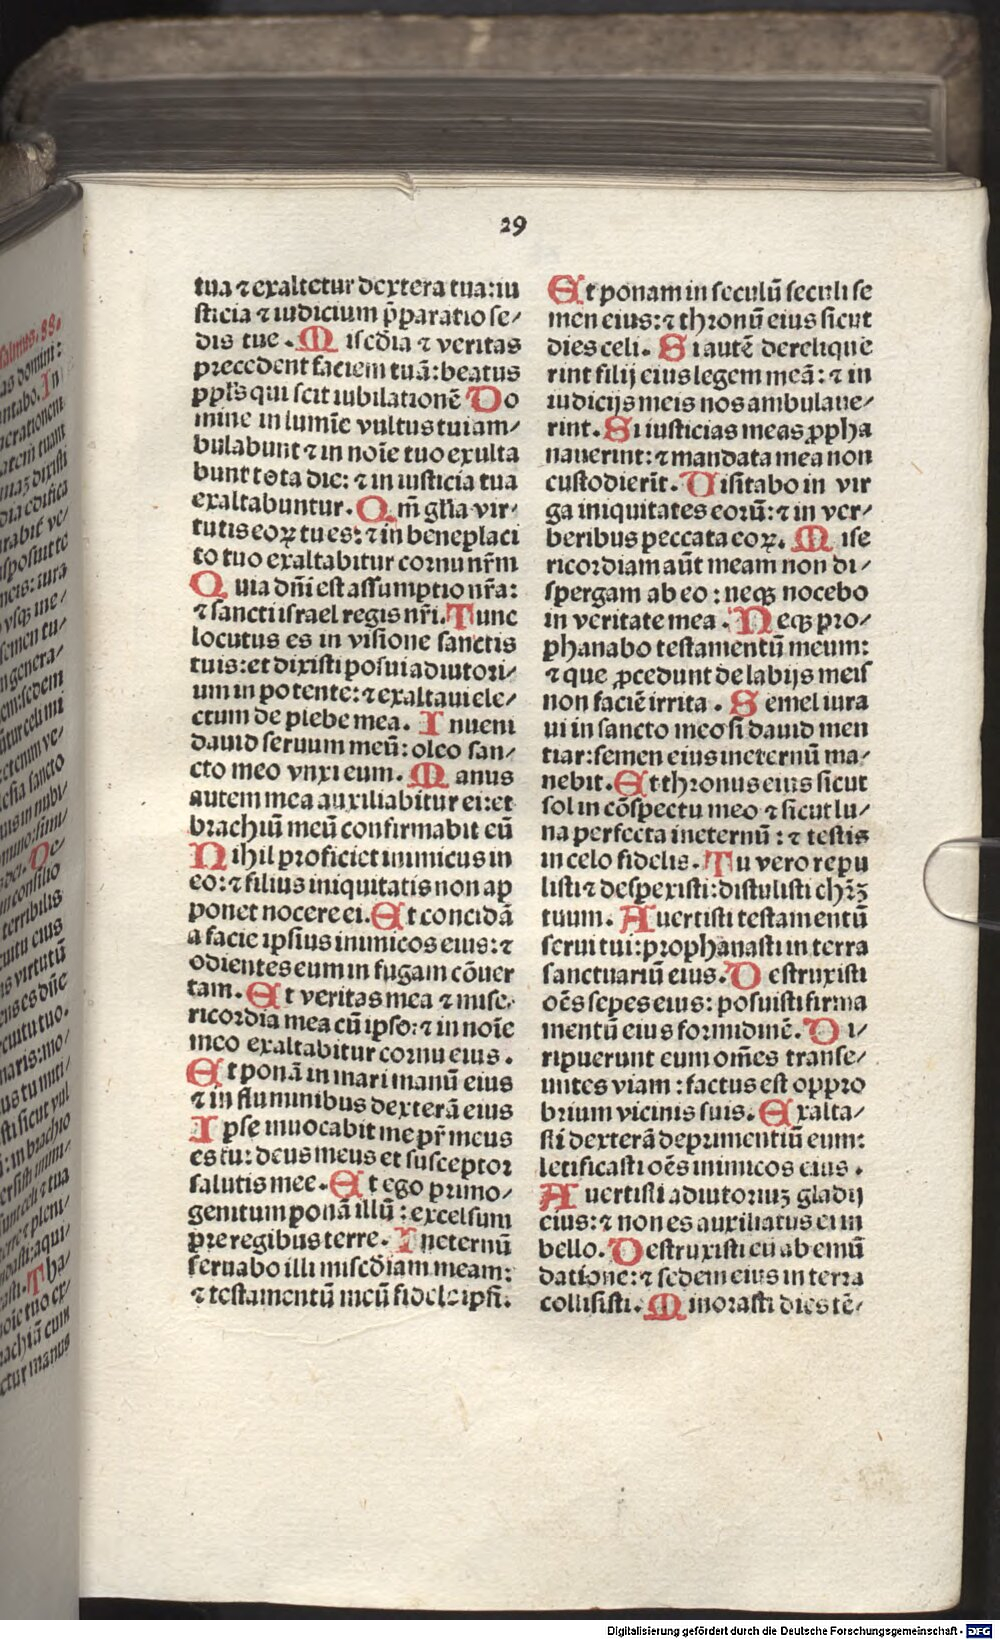 29
tua ⁊ exaltetur dextera tua: iu
sticia ⁊ iudicium p̄paratio se/
dis tue. Misc̄dia ⁊ veritas
precedent faciem tuā: beatus
ppl̄s qui scit iubilationē Do
mine in lumīe vultus tui am/
bulabunt ⁊ in noīe tuo exulta
bunt tota die: ⁊ in iusticia tua
exaltabuntur. Qm̄ gl̄ia vir/
tutis eoꝝ tu es: ⁊ in beneplaci
to tuo exaltabitur cornu nr̄m
Quia dn̄i est assumptio nr̄a:
⁊ sancti israel regis nr̄i. Tunc
locutus es in visione sanctis
tuis: et dixisti posui adiutori/
um in potente: ⁊ exaltaui ele/
ctum de plebe mea. Inueni
dauid seruum meū: oleo san/
cto meo vnxi eum. Manus
autem mea auxiliabitur ei: et
brachiū meū confirmabit eū
Nihil proficiet inimicus in
eo: ⁊ filius iniquitatis non ap
ponet nocere ei. Et concidā
a facie ipsius inimicos eius: ⁊
odientes eum in fugam cōuer
tam. Et veritas mea ⁊ mise/
ricordia mea cū ipso: ⁊ in noīe
meo exaltabitur cornu eius.
Et ponā in mari manū eius
⁊ in fluminibus dexterā eius
Ipse inuocabit me pr̄ meus
es tu: deus meus et susceptor
salutis mee. Et ego primo/
genitum ponā illū: excelsum
pre regibus terre. In eternū
seruabo illi misc̄diam meam:
⁊ testamentū meū fidele ipsi.
Et ponam in seculū seculi se
men eius: ⁊ thronū eius sicut
dies celi. Si autē derelique
rint filij eius legem meā: ⁊ in
iudicijs meis nō ambulaue/
rint. Si iusticias meas ꝓpha
nauerint: ⁊ mandata mea non
custodierīt. Visitabo in vir
ga iniquitates eorū: ⁊ in ver/
beribus peccata eoꝝ. Mise
ricordiam aūt meam non di/
spergam ab eo: neqꝫ nocebo
in veritate mea. Neqꝫ pro/
phanabo testamentū meum:
⁊ que ꝓcedunt de labijs meis
non faciē irrita. Semel iura
ui in sancto meo si dauid men
tiar: semen eius in eternū ma/
nebit. Et thronus eius sicut
sol in cōspectu meo ⁊ sicut lu/
na perfecta in eternū: ⁊ testis
in celo fidelis. Tu vero repu
listi ⁊ despexisti: distulisti chr̄ꝫ
tuum. Auertisti testamentū
serui tui: prophanasti in terra
sanctuariū eius. Destruxisti
oēs sepes eius: posuisti firma
mentū eius formidinē. Di/
ripuerunt eum om̄es transe/
untes viam: factus est oppro
brium vicinis suis. Exalta/
sti dexterā deprimentiū eum:
letificasti oēs inimicos eius.
Auertisti adiutoriuꝫ gladij
eius: ⁊ non es auxiliatus ei in
bello. Destruxisti eū ab emū
datione: ⁊ sedem eius in terra
collisisti. Minorasti dies tē/
Digitalisierung gefördert durch die Deutsche Forschungsgemeinschaft - DFG